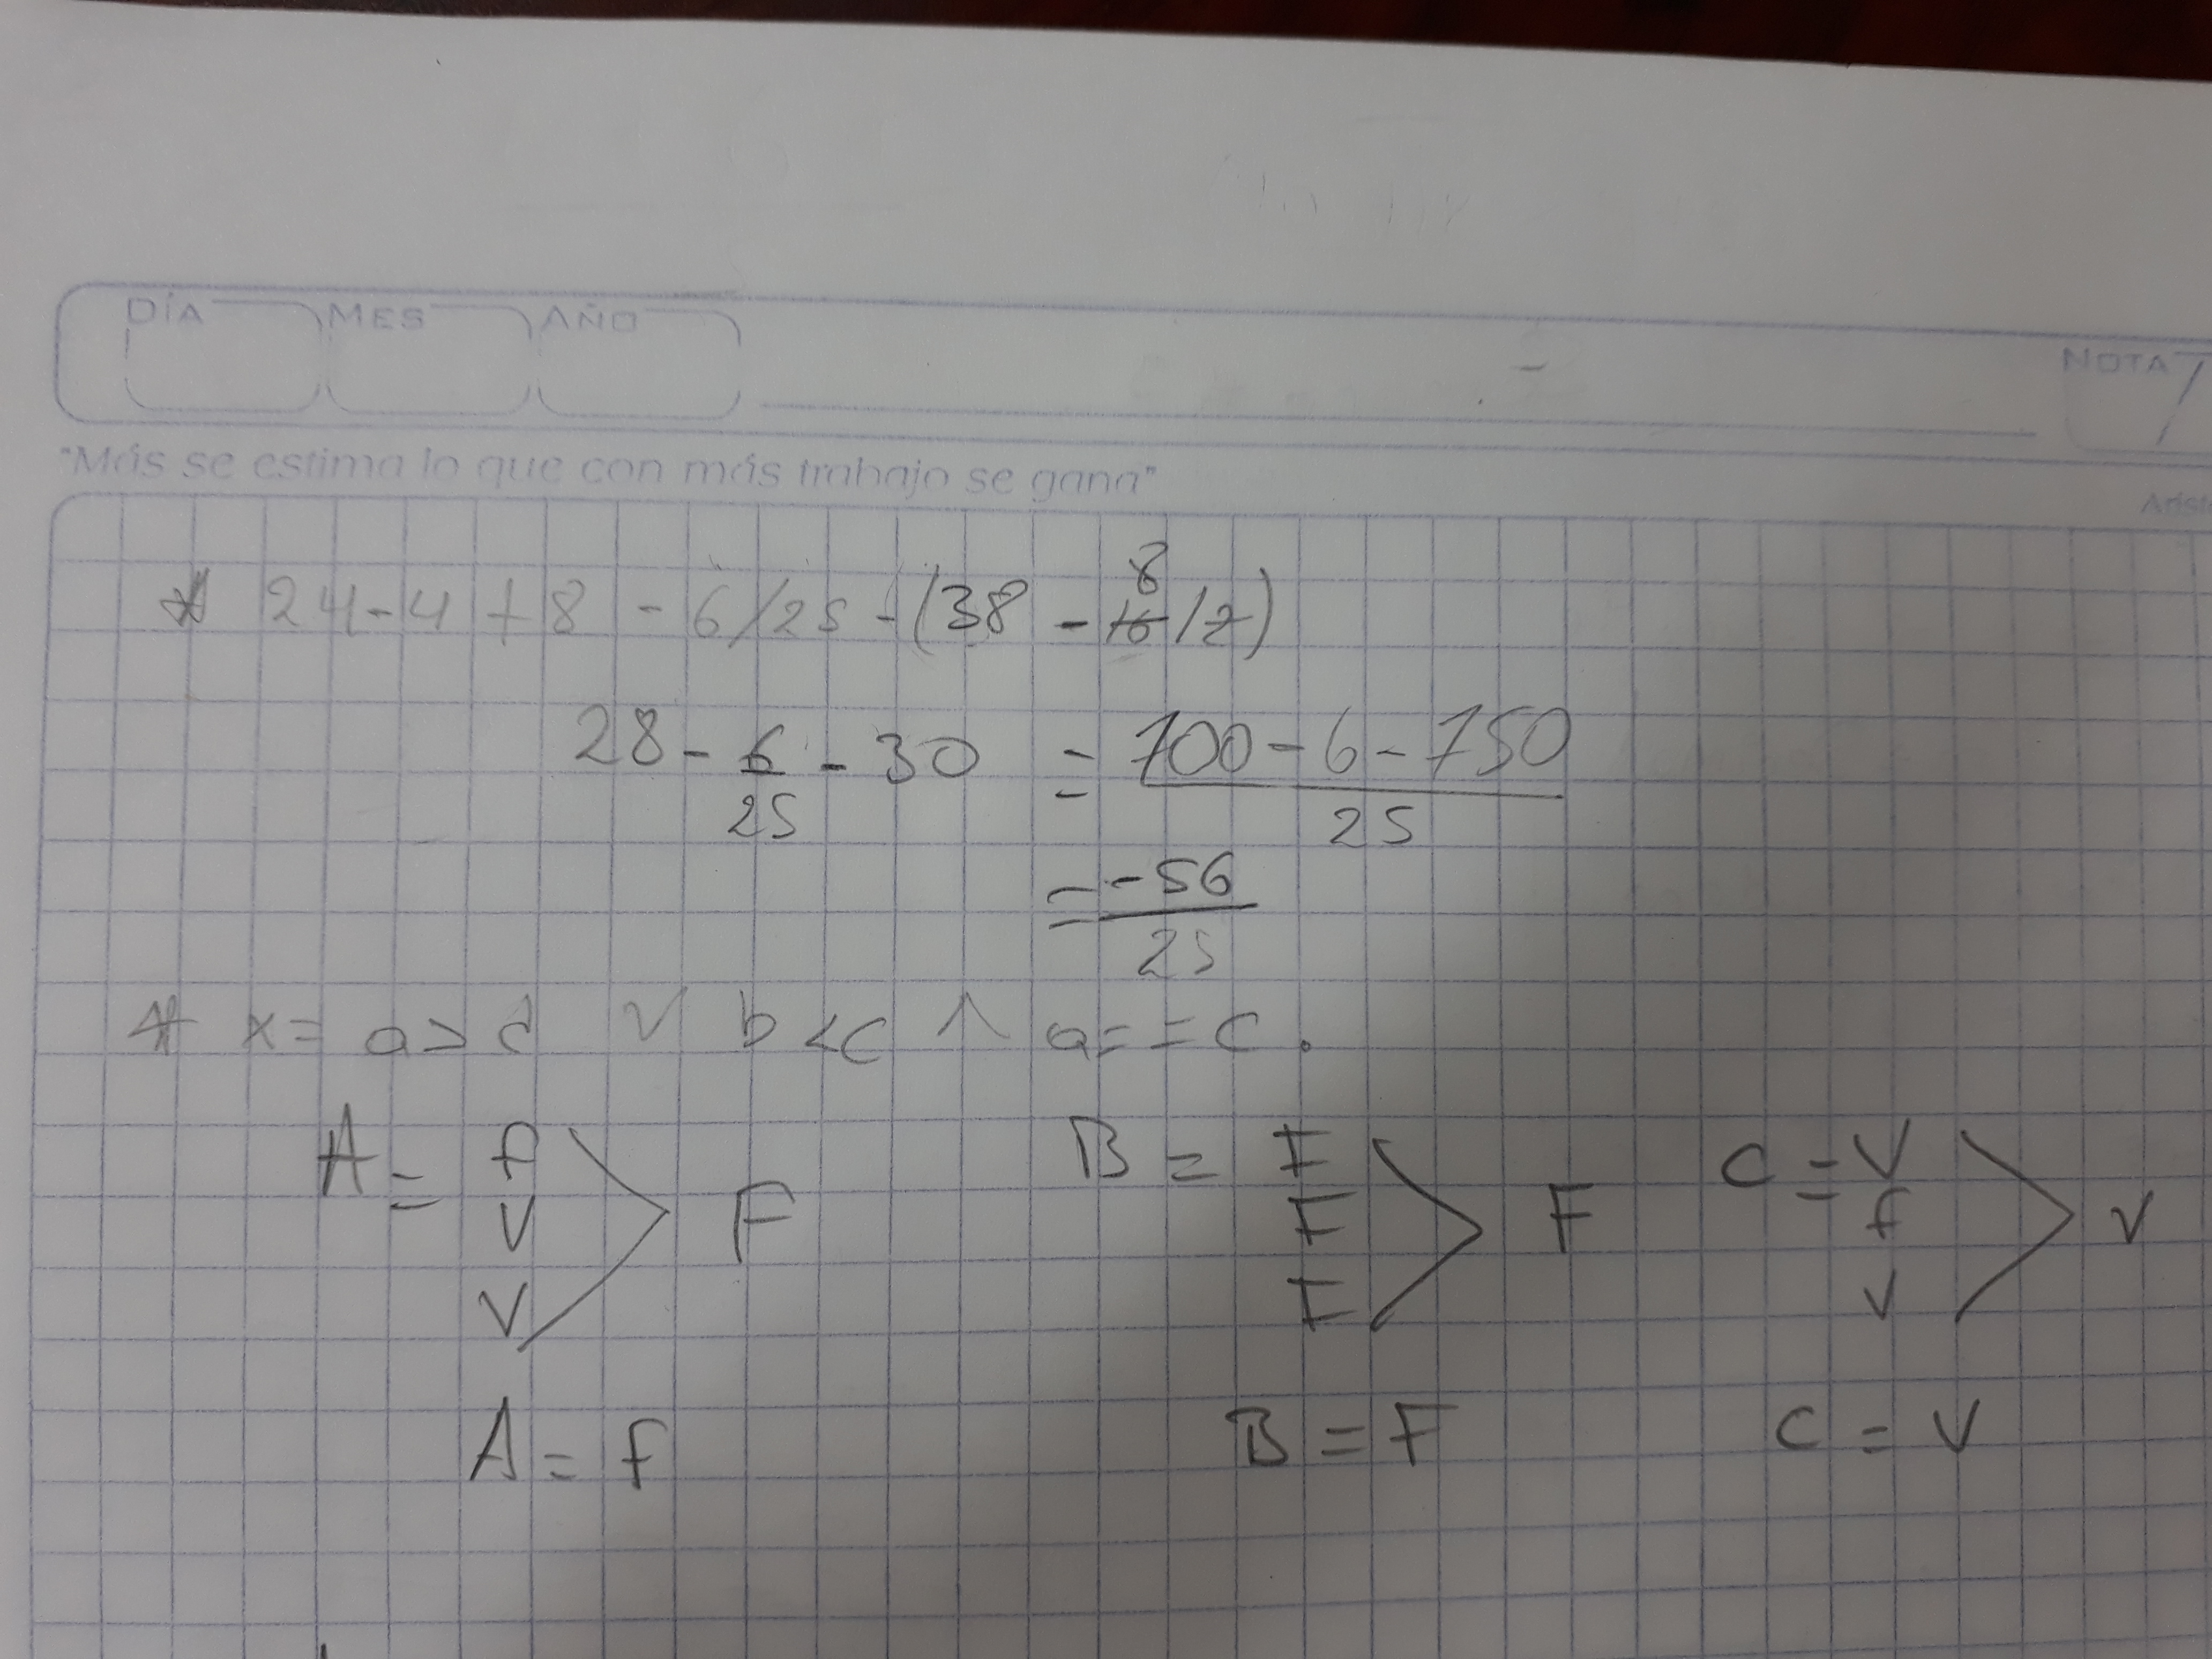 DÍA MES AÑO NOTA
"Más se estima lo que con más trabajo se gana"
* 24-4+8-6/25-(38-16/2)
8
28-6-30 = 700-6-750
25 25
=-56
25
* x= a>d V b<c ^ a==c.
A = F B = F C = V
V F F V F f V
V F V
A=f B=F C=V